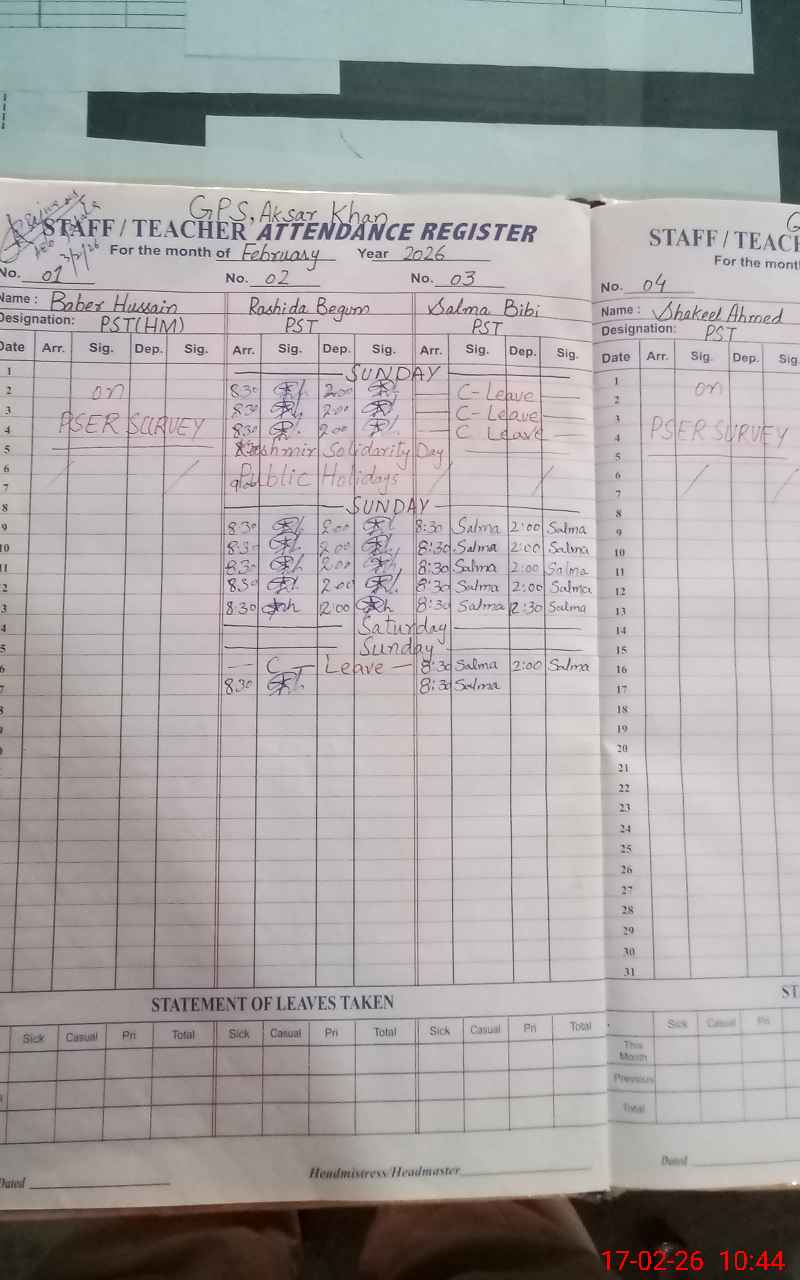 GPS, Aksar Khan
STAFF / TEACHER ATTENDANCE REGISTER
For the month of February Year 2026
3/2/26
No. 01 No. 02 No. 03
Name : Baber Hussain Rashida Begum Salma Bibi
Designation: PST(HM) PST PST
Date Arr. Sig. Dep. Sig. Arr. Sig. Dep. Sig. Arr. Sig. Dep. Sig.
1 SUNDAY
2 on 8:30 2:00 C-Leave
3 8:30 2:00 C-Leave
4 PSER SURVEY 8:30 2:00 C Leave
5 Kashmir Solidarity Day
6 Public Holidays
7
8 SUNDAY
9 8:30 2:00 8:30 Salma 2:00 Salma
10 8:30 2:00 8:30 Salma 2:00 Salma
11 8:30 2:00 8:30 Salma 2:00 Salma
2 8:30 2:00 8:30 Salma 2:00 Salma
3 8:30 2:00 8:30 Salma 2:30 Salma
4 Saturday
5 Sunday
6 C - Leave 8:30 Salma 2:00 Salma
7 8:30 8:30 Salma
8
STATEMENT OF LEAVES TAKEN
Sick Casual Pri Total Sick Casual Pri Total Sick Casual Pri Total
Dated Headmistress/Headmaster
STAFF / TEACH
For the mont
No. 04
Name : Shakeel Ahmed
Designation: PST
Date Arr. Sig. Dep. Sig.
1
2 on
3
4 PSER SURVEY
5
6
7
8
9
10
11
12
13
14
15
16
17
18
19
20
21
22
23
24
25
26
27
28
29
30
31
ST
Sick Casual Pri
This Month
Previous
Total
Dated
17-02-26 10:44